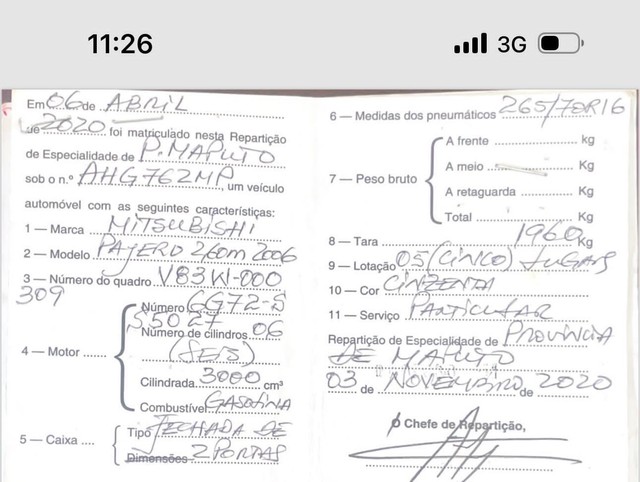 11:26
3G
Em 06 de ABRIL
de 2020 foi matriculado nesta Repartição
de Especialidade de P. MAPUTO
sob o n.º AHG 762 MP, um veículo
automóvel com as seguintes características:
1 — Marca MITSUBISHI
2 — Modelo PAJERO 260m 2006
3 — Número do quadro V83W-000
309
Número 6G72-S
S5027
Número de cilindros 06
(SEIS)
4 — Motor
Cilindrada 3000 cm³
Combustível GASOLINA
5 — Caixa
Tipo FECHADA DE
Dimensões 2 PORTAS
6 — Medidas dos pneumáticos 265/70R16
7 — Peso bruto
A frente kg
A meio Kg
A retaguarda Kg
Total Kg
8 — Tara 1960 Kg
9 — Lotação 05 (CINCO) LUGARS
10 — Cor CINZENTA
11 — Serviço PARTICULAR
Repartição de Especialidade de PROVINCIA
DE MAPUTO
03 de NOVEMBRO de 2020
O Chefe de Repartição,